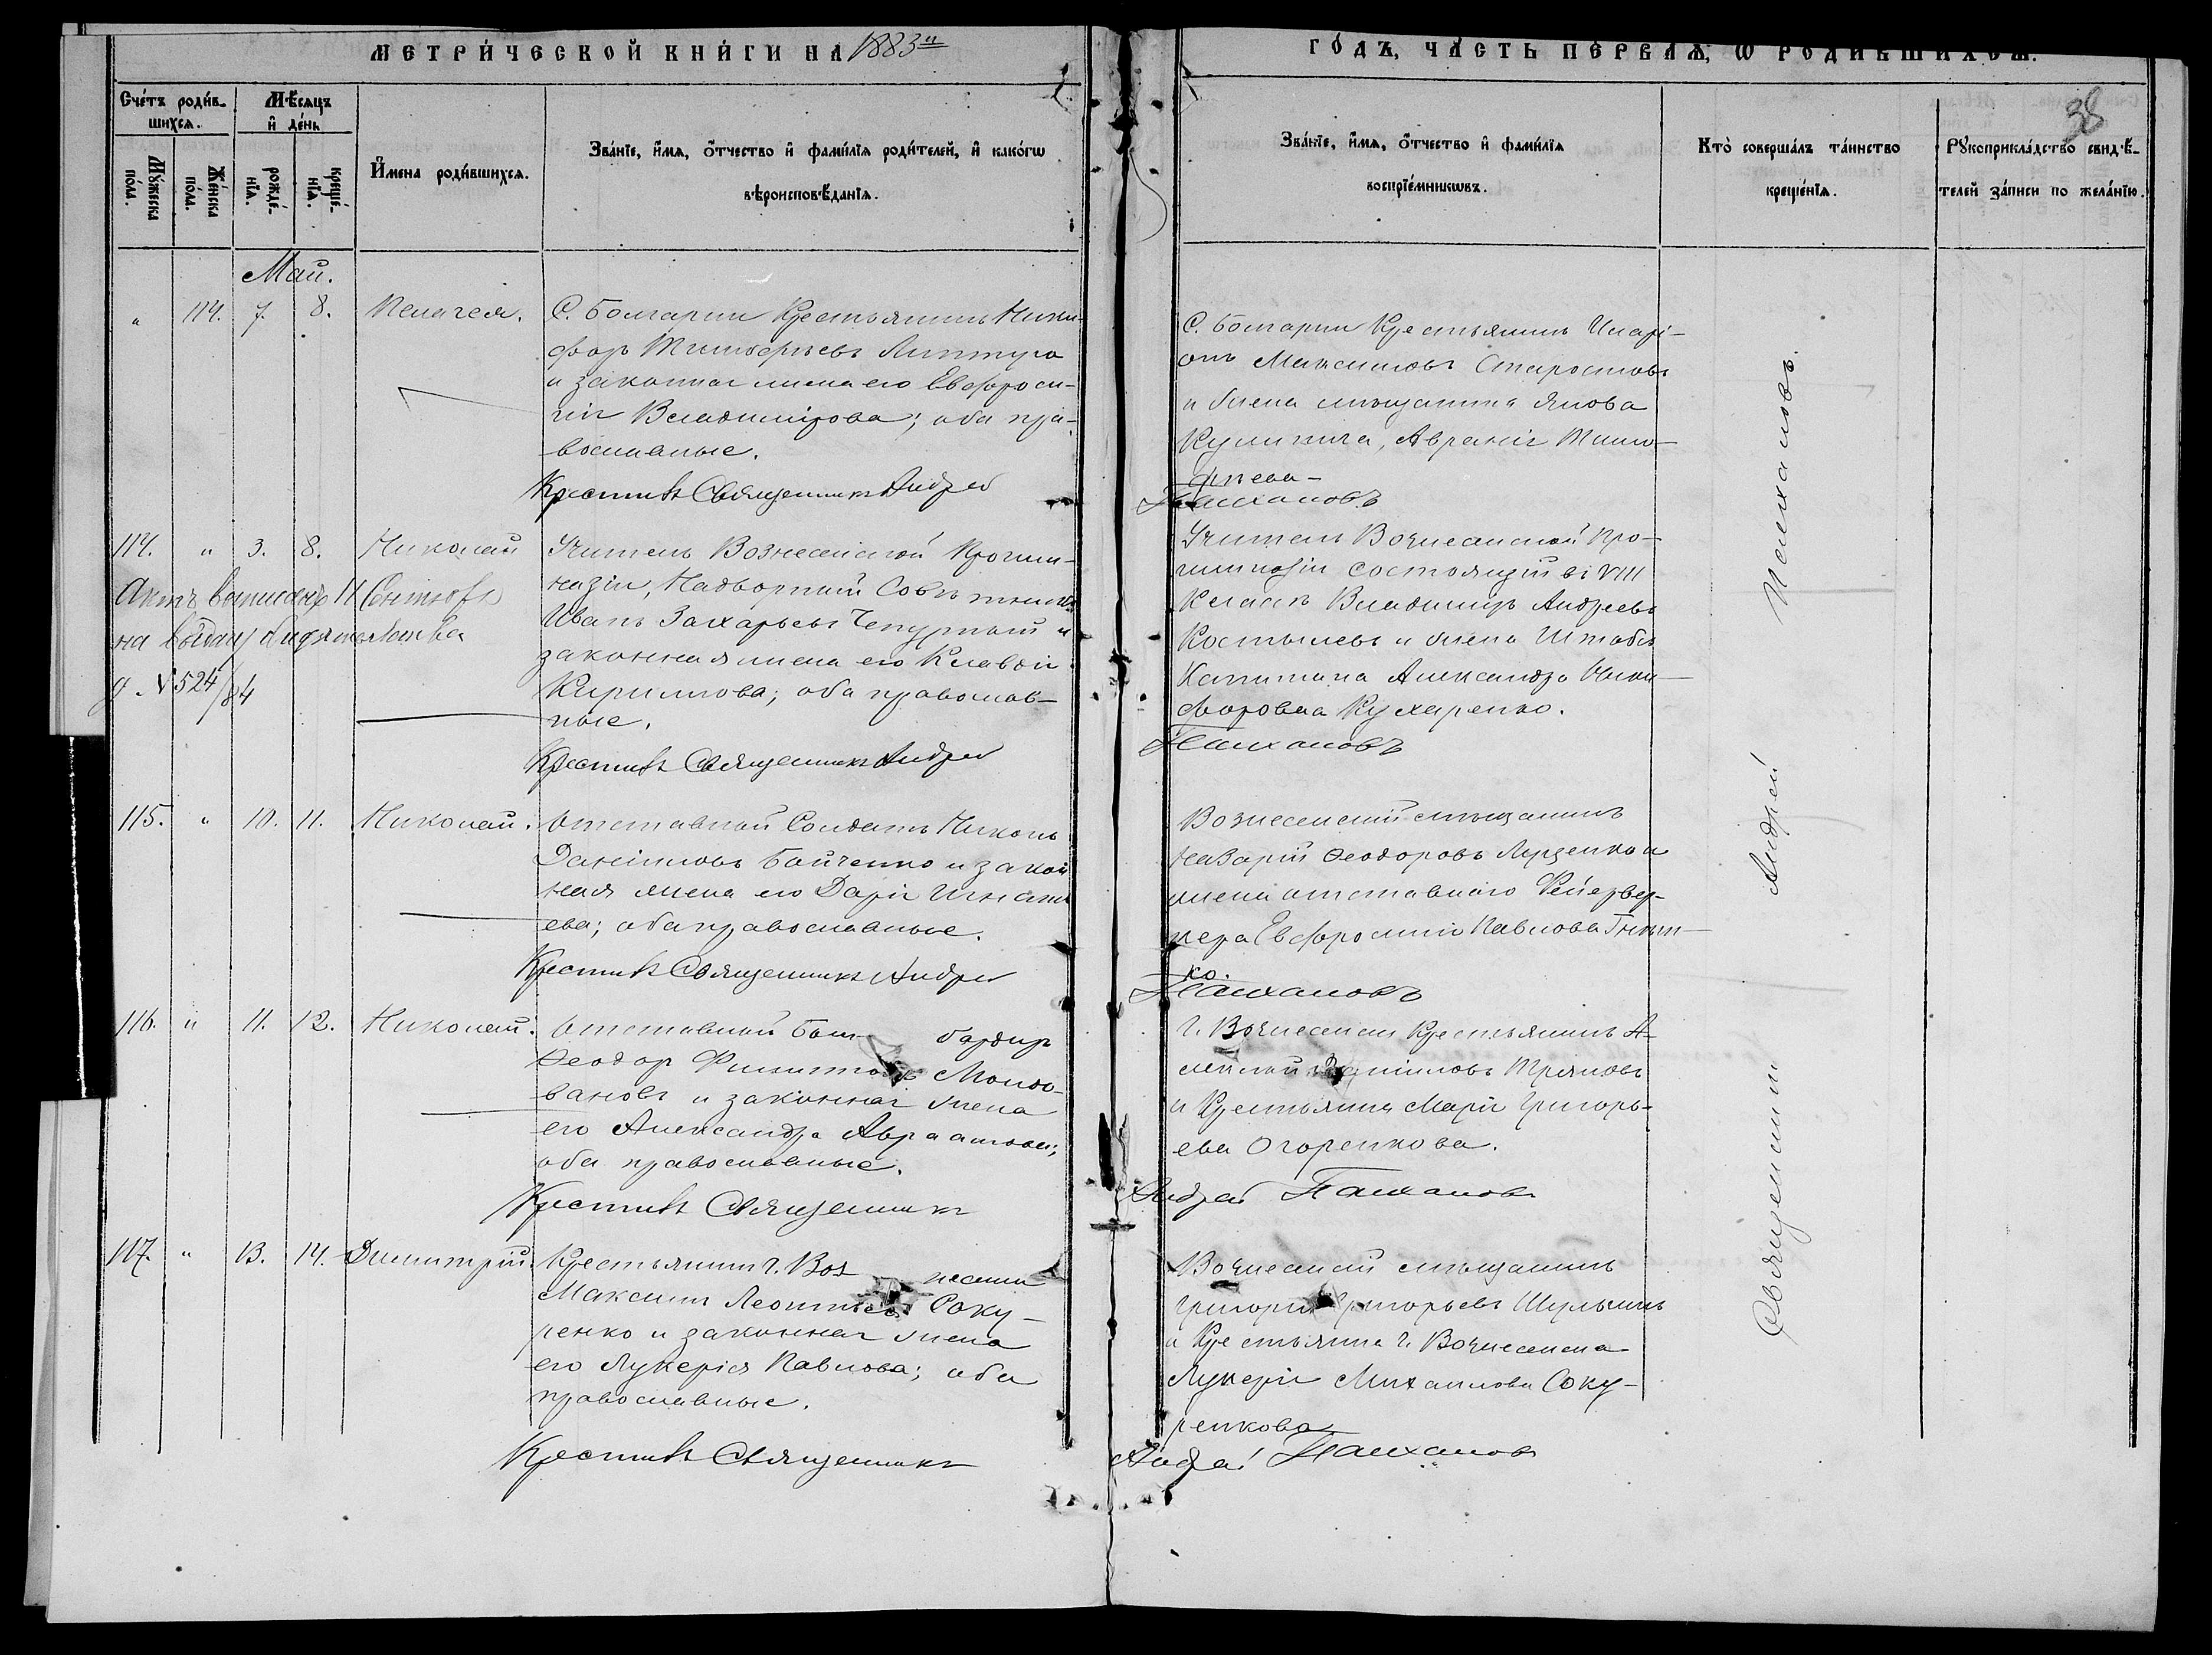 МЕТРИ́ЧЕСКОЙ КНИ́ГИ НА 1883й
ГО́ДЪ, ЧА́СТЬ ПЕ́РВАѦ, Ѡ РОДИ́ВШИХСѦ.
38
Счéтъ роди́в-
шихсѧ.
Мѣ́сѧцъ
и҆ дéнь
Мꙋ́жеска
по́ла.
Же́нска
по́ла.
рожде́-
нїѧ.
креще́-
нїѧ.
И҆мена роди́вшихсѧ.
Зва́нїе, и҆́мѧ, ѻ҆́тчество и҆ фами́лїѧ роди́телей, и҆ како́гѡ
вѣроисповѣ́данїѧ.
Зва́нїе, и҆́мѧ, ѻ҆́тчество и҆ фами́лїѧ
воспрїе́мникѡвъ.
Кто̀ соверша́лъ та́инство
креще́нїѧ.
Рꙋкоприкла́дство свидѣ́-
телей за́писи по жела́нїю.
Май.
" 114. 7. 8. Пелагея.
С. Болгарии Крестьянинъ Ники-
форъ Тимофѣевъ Липтуга
и законная жена его Евфроси-
нія Владимірова; оба пра-
вославные.
Крестилъ Священникъ Андрей
С. Болгарии Крестьянинъ Иларі-
онъ Максимовъ Старостовъ
и жена мѣщанина Якова
Авраміа Тимо-
фѣева
Палхановъ
114. " 3. 8. Николай
Актъ выписанъ 11 Сентября
на выдачу
д. № 524/84
Учитель Вознесенской Прогим-
назіи, Надворный Совѣтникъ
Иванъ Захарьевъ Чепурный и
законная жена его Клавдія
Кириллова; оба православ-
ные.
Крестилъ Священникъ Андрей
Учитель Вознесенской Про-
гимназіи состоящій въ VIII
Классѣ Владимиръ Андреевъ
Костылевъ и жена Штабсъ
Капитана Александра Ники-
форовна Кухаренко.
Палхановъ
115. " 10. 11. Николай.
Отставной Солдатъ Никонъ
Даніиловъ Бойченко и закон
ная жена его Дарія Игнать
ева; оба православные.
Крестилъ Священникъ Андрей
Вознесенскій мѣщанинъ
Назарій Ѳеодоровъ Луценко и
жена отставнаго Фейервер-
кера Евфросинія Павлова
ко.
Палхановъ
116. " 11. 12. Николай.
Отставной Бом- бардиръ
Ѳеодор Филиповъ Молдо-
вановъ и законная жена
его Александра Авраамова;
оба православные.
Крестилъ Священникъ
Г. Вознесенска Крестьянинъ А-
лексѣй Даниловъ
и Крестьянка Марія Григорь-
ева Огоренкова.
Андрей Палхановъ
117. " 13. 14. Димитрій.
Крестьянинъ г. Воз- несенска
Максимъ Леонтьевъ Соку-
ренко и законная жена
его Лукерія Павлова; оба
православные.
Крестилъ Священникъ
Вознесенскій мѣщанинъ
Григорій Григорьевъ Шульжинъ
и Крестьянка г. Вознесенска
Лукерія Михаилова Соку-
ренкова
Андрей Палхановъ
Священникъ Андрей Палхановъ.